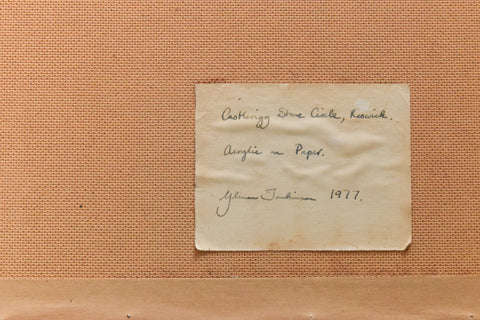 Castlerigg Stone Circle, Keswick.
Acrylic on Paper.
Tomkinson 1977.